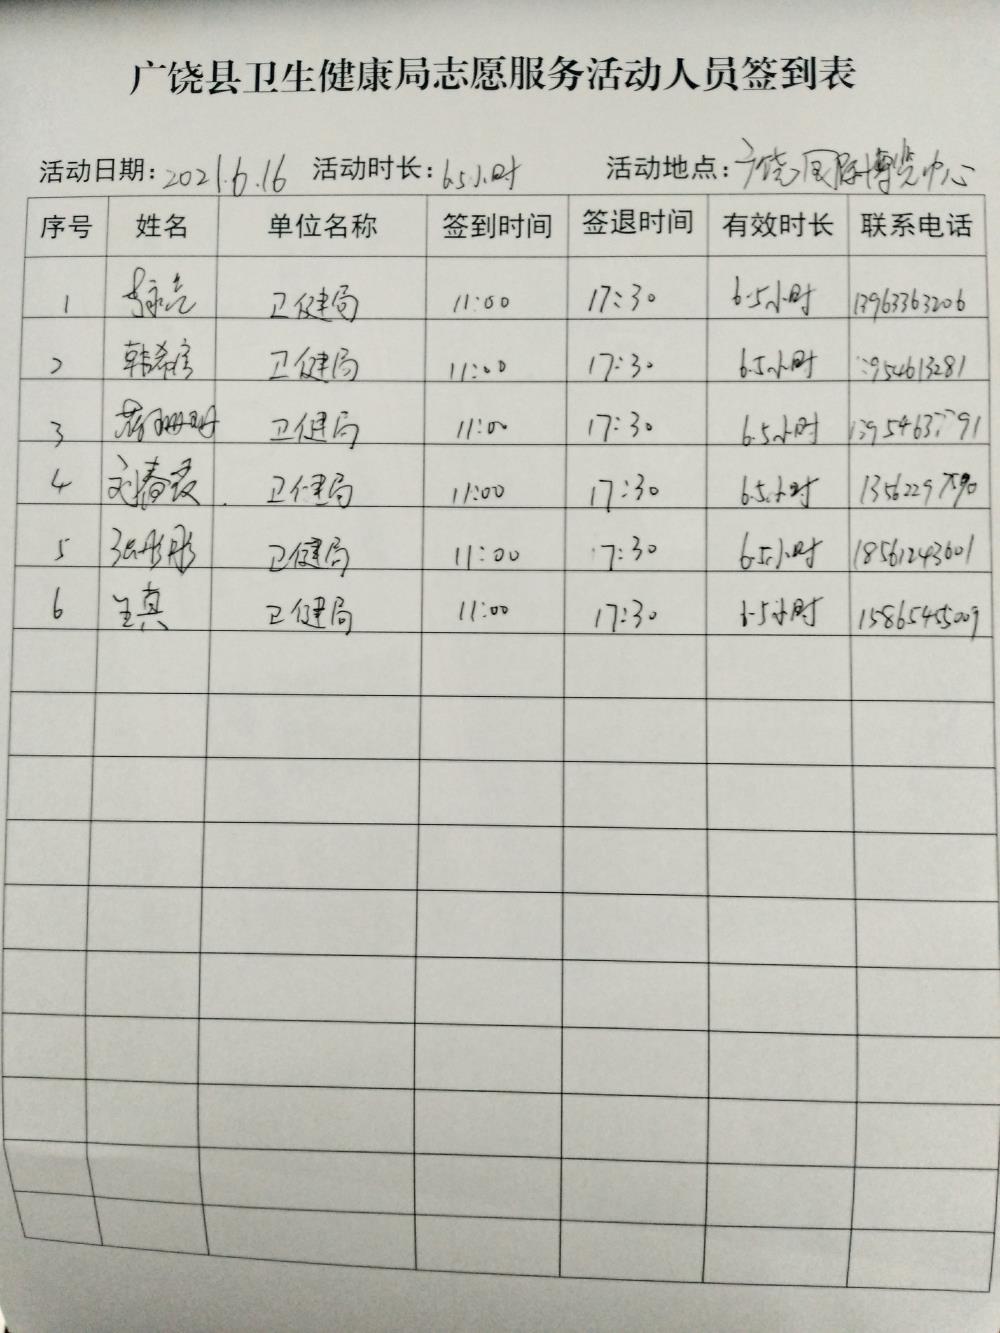 广饶县卫生健康局志愿服务活动人员签到表
活动日期: 2021.6.16 活动时长: 6.5小时 活动地点: 广饶国际博览中心
序号 姓名 单位名称 签到时间 签退时间 有效时长 联系电话
1 李永亮 卫健局 11:00 17:30 6.5小时 13963363206
2 韩希 卫健局 11:00 17:30 6.5小时
3 珊珊 卫健局 11:00 17:30 6.5小时
4 刘春霞 卫健局 11:00 17:30 6.5小时 13562297590
5 张彤彤 卫健局 11:00 17:30 6.5小时 18561243601
6 王真 卫健局 11:00 17:30 6.5小时 15865455009